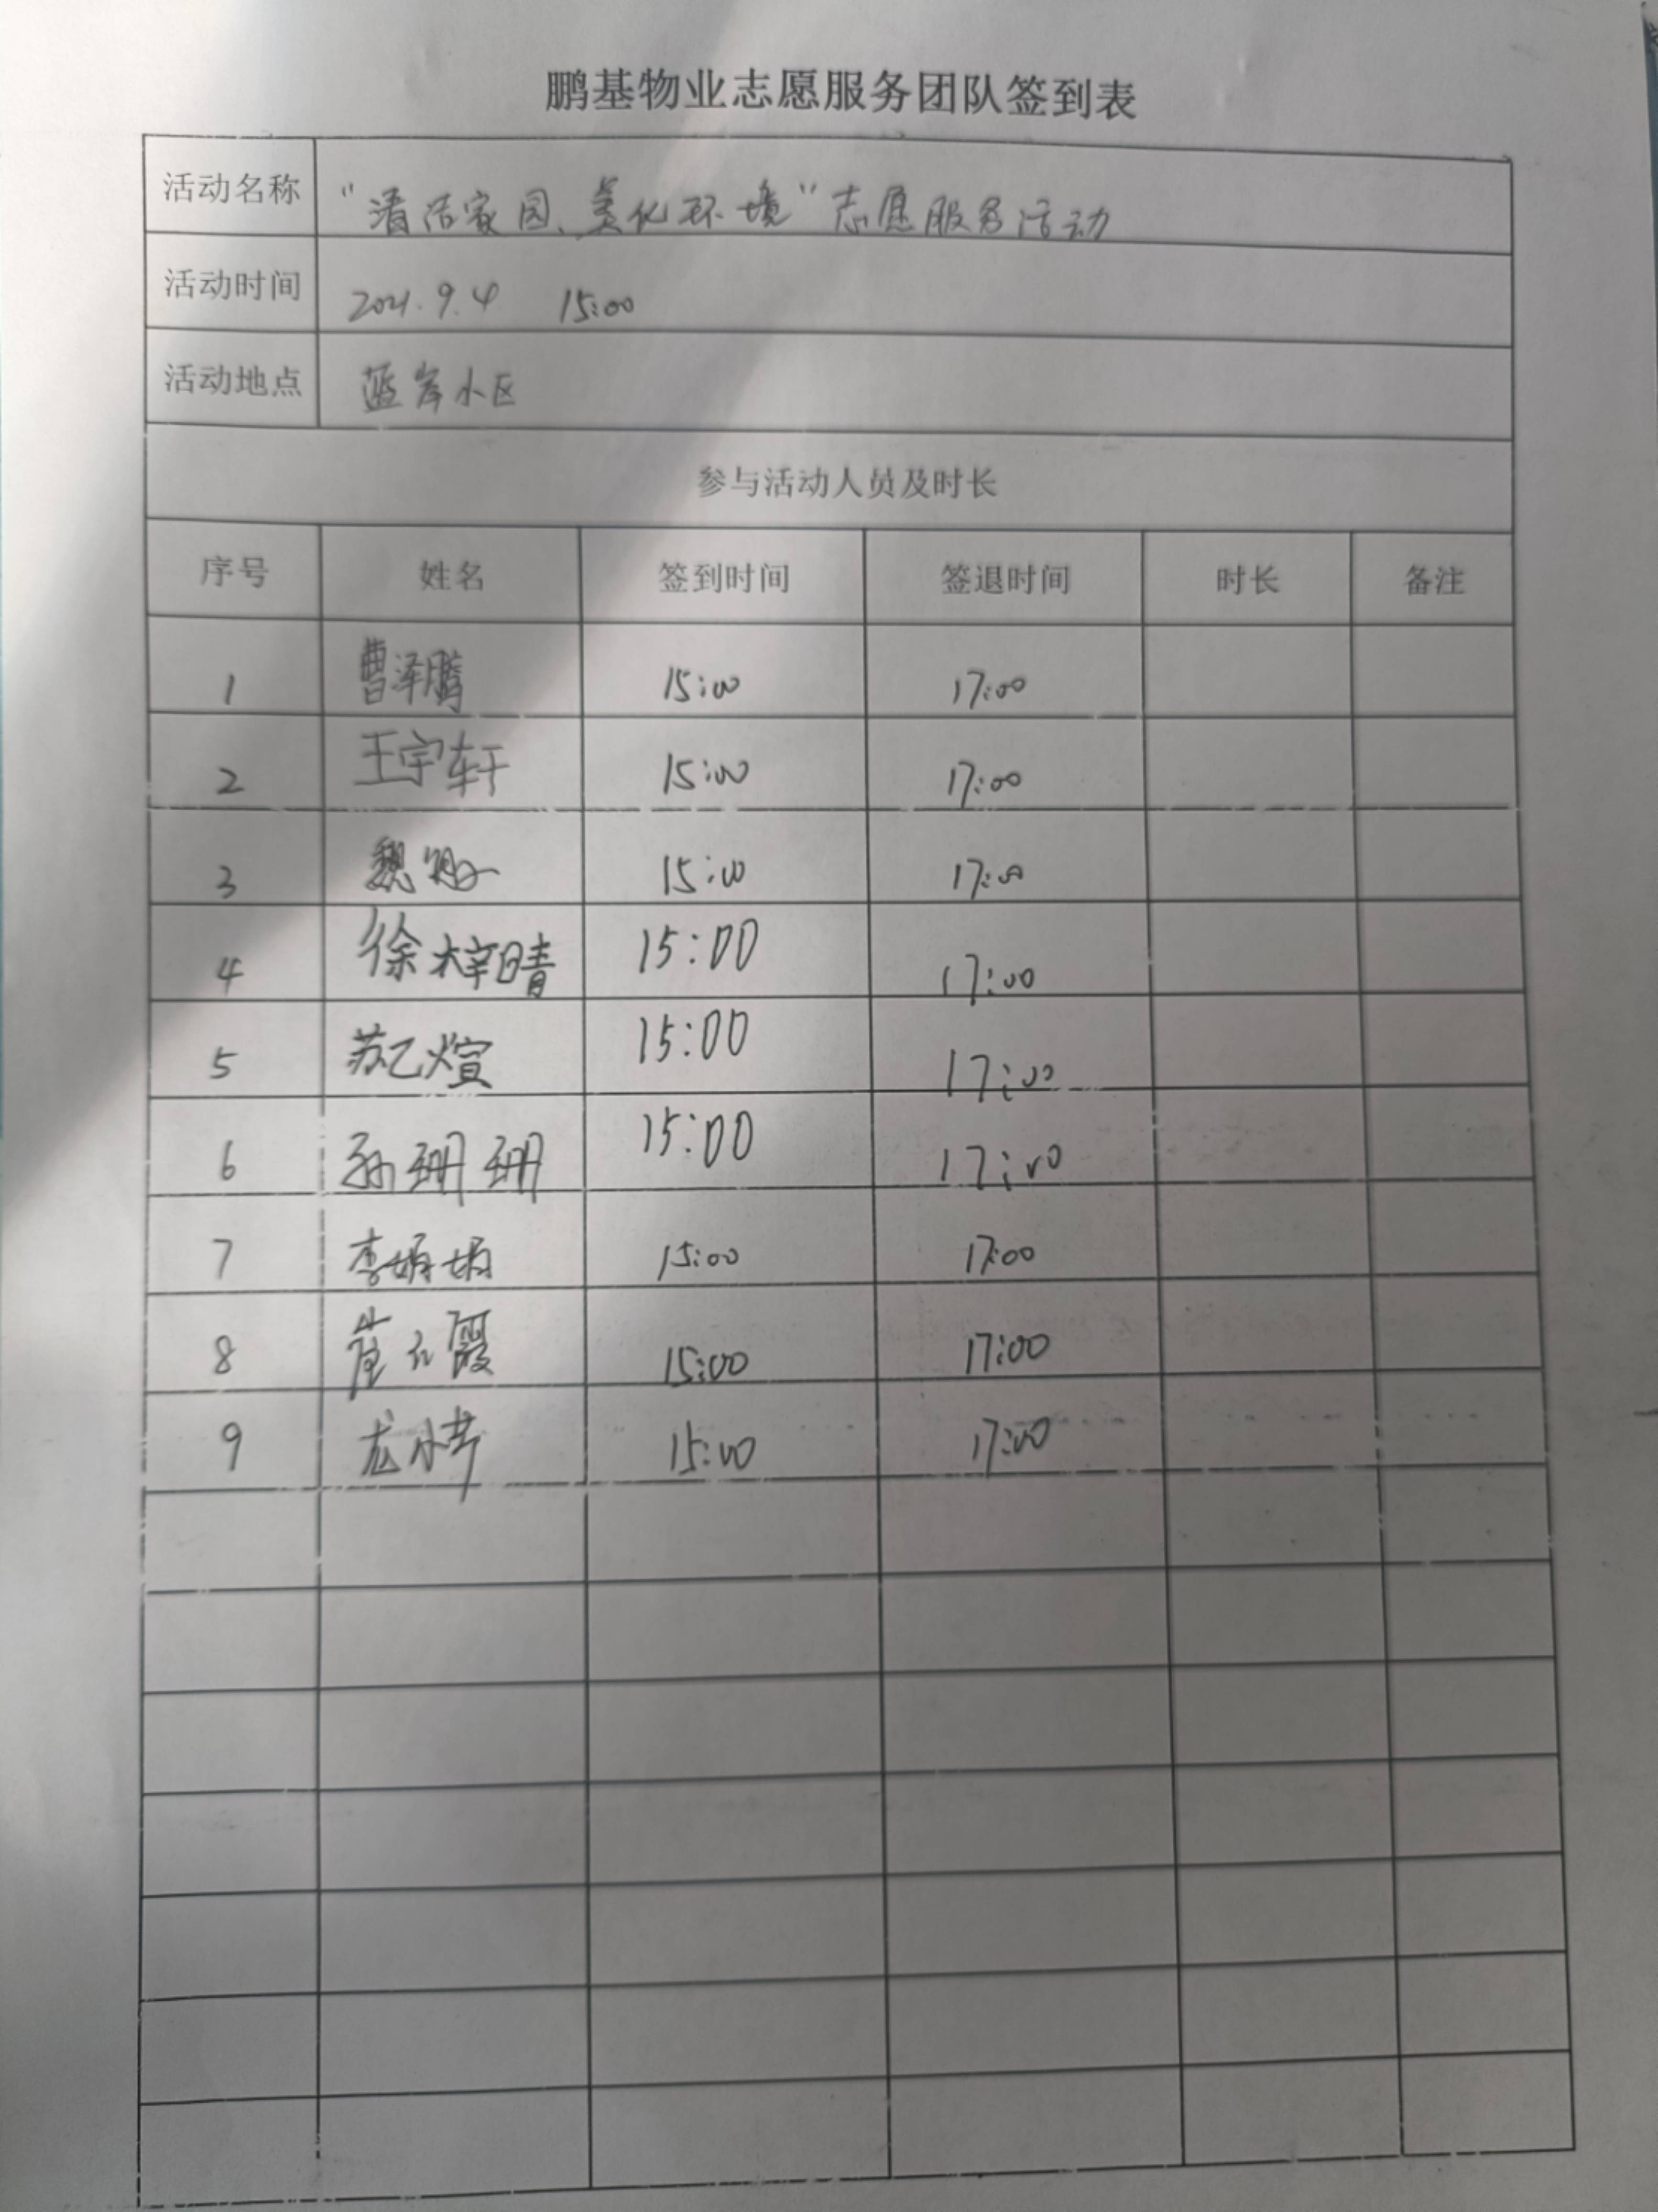 鹏基物业志愿服务团队签到表
活动名称 "清洁家园、美化环境"志愿服务活动
活动时间 2021.9.4 15:00
活动地点 蓝岸小区
参与活动人员及时长
序号 姓名 签到时间 签退时间 时长 备注
1 曹泽腾 15:00 17:00
2 王宇轩 15:00 17:00
3 魏 15:00 17:00
4 徐梓晴 15:00 17:00
5 苏乙煊 15:00 17:00
6 孙珊珊 15:00 17:00
7 李娟娟 15:00 17:00
8 崔红霞 15:00 17:00
9 龙小芳 15:00 17:00